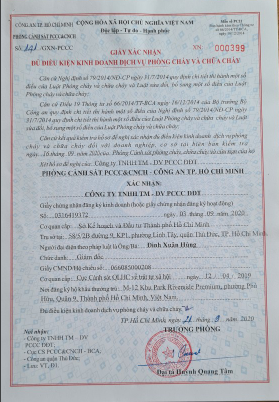 CÔNG AN TP. HỒ CHÍ MINH
PHÒNG CẢNH SÁT PCCC&CNCH
CỘNG HÒA XÃ HỘI CHỦ NGHĨA VIỆT NAM
Độc lập - Tự do - Hạnh phúc
Mẫu số PC13
Số: 141 /GXN-PCCC
XN. 000399
GIẤY XÁC NHẬN
ĐỦ ĐIỀU KIỆN KINH DOANH DỊCH VỤ PHÒNG CHÁY VÀ CHỮA CHÁY
Căn cứ Nghị định số 79/2014/NĐ-CP ngày 31/7/2014 quy định chi tiết thi hành một số
điều của Luật Phòng cháy và chữa cháy và Luật sửa đổi, bổ sung một số điều của Luật
Phòng cháy và chữa cháy;
Căn cứ Điều 19 Thông tư số 66/2014/TT-BCA ngày 16/12/2014 của Bộ trưởng Bộ
Công an quy định chi tiết thi hành một số điều của Nghị định số 79/2014/NĐ-CP ngày
31/7/2014 quy định chi tiết thi hành một số điều của Luật Phòng cháy và chữa cháy và Luật
sửa đổi, bổ sung một số điều của Luật Phòng cháy và chữa cháy;
Căn cứ kết quả thẩm tra hồ sơ đề nghị xác nhận đủ điều kiện kinh doanh dịch vụ phòng
cháy và chữa cháy đối với doanh nghiệp, cơ sở tại biên bản kiểm tra
Xét hồ sơ đề nghị của: Công ty TNHH TM - DV PCCC ĐĐT
PHÒNG CẢNH SÁT PCCC&CNCH - CÔNG AN TP. HỒ CHÍ MINH
XÁC NHẬN:
CÔNG TY TNHH TM - DV PCCC ĐĐT
Giấy chứng nhận đăng ký kinh doanh (hoặc giấy chứng nhận đăng ký hoạt động)
Số: 0316439372 ngày 03 /09 /2020
Cơ quan cấp: Sở Kế hoạch và Đầu tư Thành phố Hồ Chí Minh
Trụ sở tại: 58/5/2B đường 9, KP1, phường Linh Tây, quận Thủ Đức, TP. Hồ Chí Minh
Người đại diện theo pháp luật là Ông/Bà: Đinh Xuân Hùng
Chức danh: Giám đốc
Giấy CMND/Hộ chiếu số: 066085000208
Cơ quan cấp: Cục Cảnh sát QLHC về trật tự xã hội ngày 12 / 04 /2019
Nơi đăng ký hộ khẩu thường trú: M-12 Khu Park Riverside Premium, phường Phú
Hữu, Quận 9, Thành phố Hồ Chí Minh, Việt Nam.
Đủ điều kiện kinh doanh dịch vụ phòng cháy và chữa cháy
TP.Hồ Chí Minh, ngày 21 tháng 9 năm 2020
TRƯỞNG PHÒNG
Nơi nhận:
- Công ty TNHH TM - DV
PCCC ĐĐT;
- Cục CS PCCC&CNCH - BCA;
- Công an quận Thủ Đức;
- Lưu: VT, Đ1.
Đại tá Huỳnh Quang Tâm